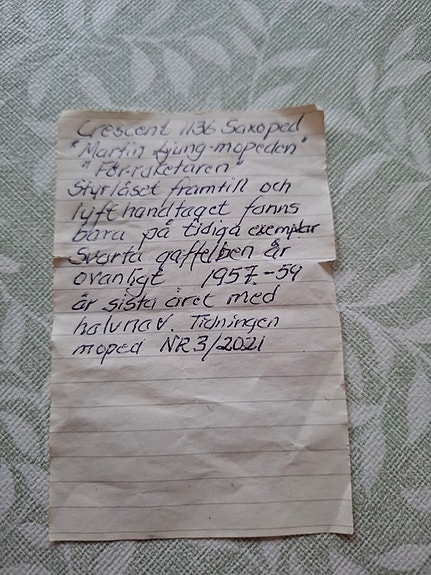 Crescent 1136 Saxoped
"Martin Ljung-mopeden"
"Förraketaren"
Styrlåset framtill och
lyfthandtaget fanns
bara på tidiga exemplar
Svarta gaffelben är
ovanligt 1957.-59
är sista året med
halvnav. Tidningen
moped NR 3/2021